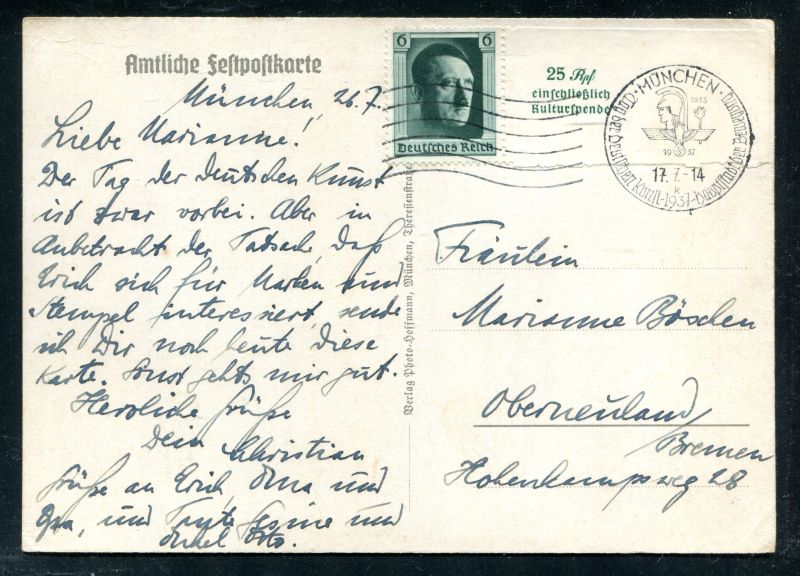 Amtliche Festpostkarte
München, 26.7.
Liebe Marianne!
Der Tag der deutschen Kunst
ist zwar vorbei. Aber in
Anbetracht der Tatsache, daß
Erich sich für Marken und
Stempel interessiert, sende
ich Dir noch heute diese
Karte. Sonst gehts mir gut.
Herzliche Grüße
Dein Christian
Grüße an Erich, Oma und
Opa, und Tante Gesine und
Onkel Otto.
Verlag Photo-Hoffmann, München, Theresienstraße
6 6
Deutsches Reich
25 Rpf
einschließlich
Kulturspende
MÜNCHEN
1933
1937
17.7.-14
k
Tag der Deutschen Kunst-1937-Hauptstadt der Bewegung
Fräulein
Marianne Böschen
Oberneuland/
Bremen
Hohenkampsweg 28